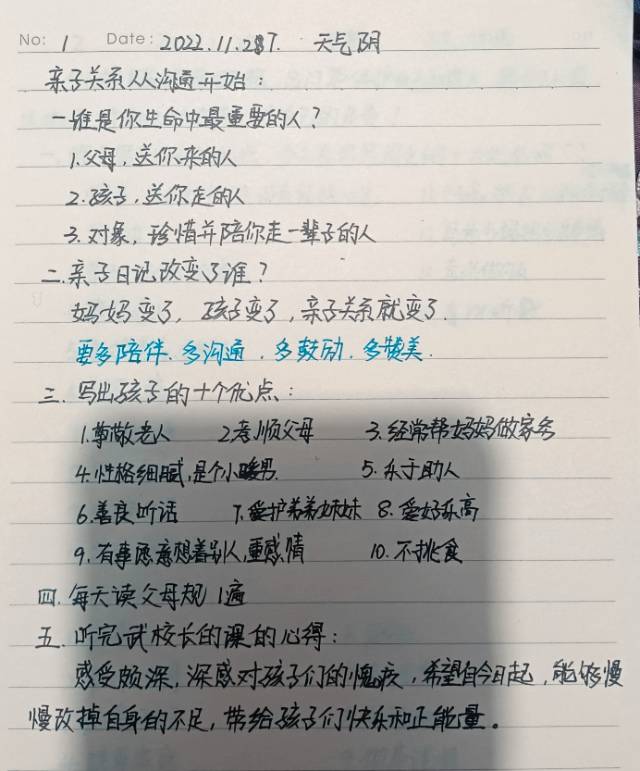 No: 1 Date: 2022.11.287. 天气阴
亲子关系从沟通开始：
一谁是你生命中最重要的人？
1.父母，送你来的人
2.孩子，送你走的人
3.对象，珍惜并陪你走一辈子的人
二.亲子日记改变了谁？
妈妈变了，孩子变了，亲子关系就变了.
要多陪伴.多沟通.多鼓励.多赞美.
三.写出孩子的十个优点：
1.尊敬老人 2.孝顺父母 3.经常帮妈妈做家务
4.性格细腻,是个小暖男. 5.乐于助人
6.善良听话 7.爱护弟弟妹妹 8.爱好乐高
9.有事愿意想着别人,重感情 10.不挑食
四.每天读父母规1遍
五.听完武校长的课的心得：
感受颇深,深感对孩子们的愧疚,希望自今日起,能够慢
慢改掉自身的不足,带给孩子们快乐和正能量。